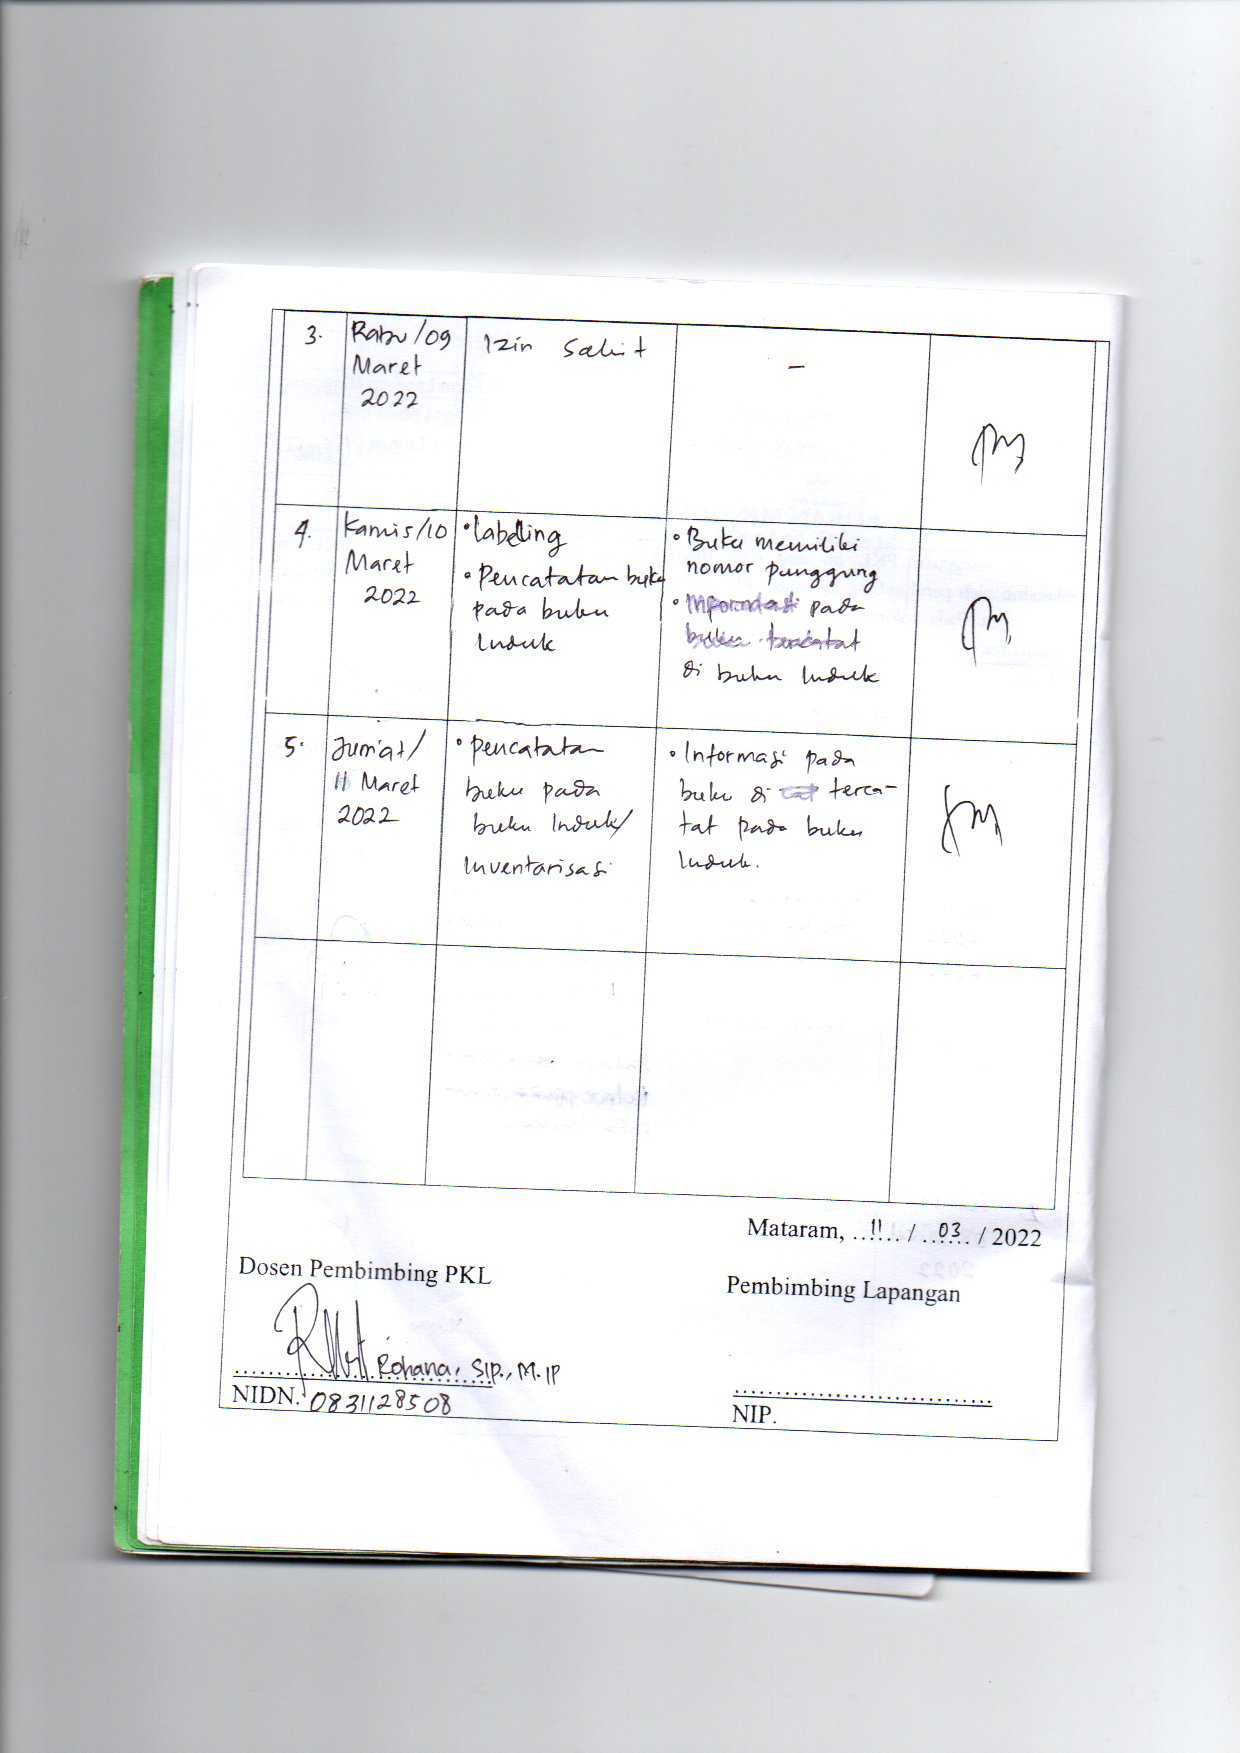 3.
Rabu/09
Maret
2022
Izin Sakit
-
4.
Kamis/10
Maret
2022
• Labeling
• Pencatatan buku
pada buku
Induk
• Buku memiliki
nomor punggung
• Informasi pada
buku tercatat
di buku Induk
5.
Jum'at/
11 Maret
2022
• Pencatatan
buku pada
buku Induk/
Inventarisasi
• Informasi pada
buku di terca-
tat pada buku
Induk.
Mataram, 11 / 03 / 2022
Dosen Pembimbing PKL
Pembimbing Lapangan
Rohana, SIP., M.IP
NIDN. 0831128508
NIP.